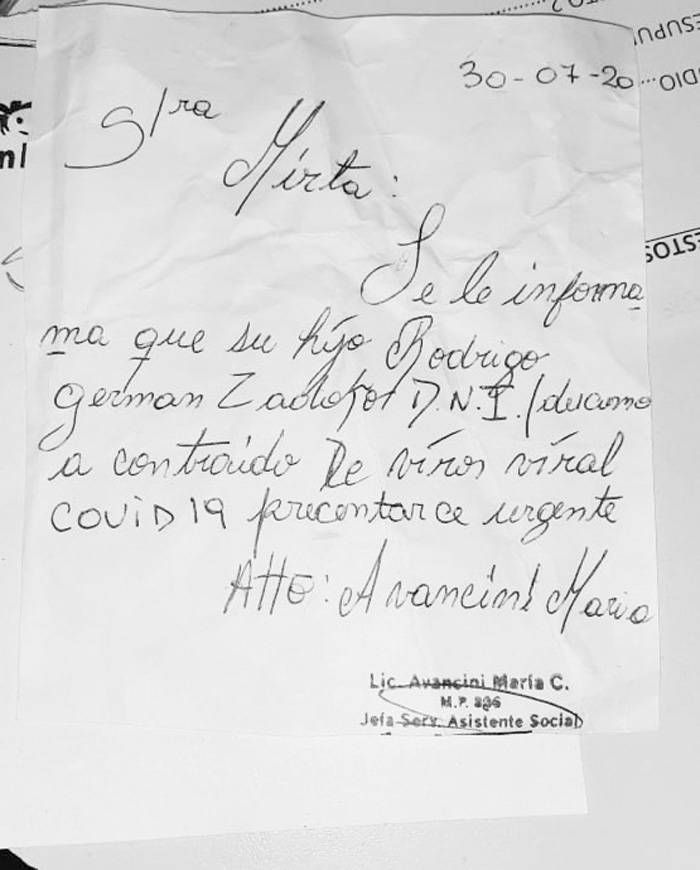 30-07-20
S/ra
Mirta:
Se le informa
ma que su hijo Rodrigo
German D.N.I.
a contraido De viros viral
COViD 19 precentarce urgente
Atto: Avancini Maria
Lic. Avancini María C.
M.P. 336
Jefa Serv. Asistente Social
ESTOS